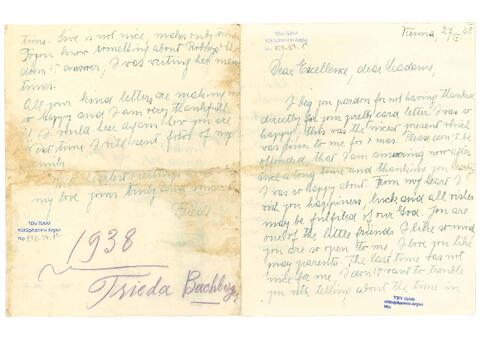 Vienna, 27/II. 38
TDV İSAM
Kütüphanesi Arşivi
Dear Excellence, dear Madame,
I beg you pardon for not having thanked
directly for your pretty card letter. I was so
happy, this was the nicest present which
was given to me for X mas. Please don't be
offended that I am answering now after
such a long time and thanking you
I was so happy about. From my heart I
wish you happiness, luck and all wishes
may be fulfilled of our God. You are
one of the little friends I like so much
you are so open to me. I love you like
my parents. The last time was not
nice for me, I don't want to trouble
you with telling about the time in
TDV İSAM
Kütüphanesi Arşivi
No:
time. Live is not nice, makes only
Do you know something about
doesn't answer, I was writing her many
times.
All your kind letters are making me
so happy and I am very thankful
if I could hear again how you are
Next time I will send fotos of my
family
With kindest greetings
my love yours truly and
Frieda
TDV İSAM
Kütüphanesi Arşivi
No
1938
Frieda